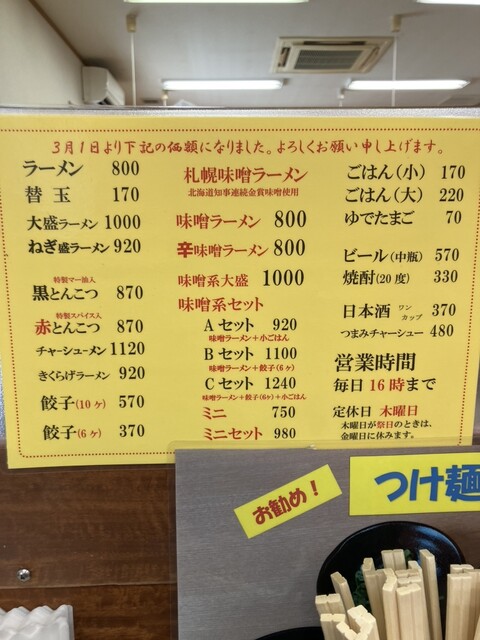 3月1日より下記の価額になりました。よろしくお願い申し上げます。
ラーメン 800
替玉 170
大盛ラーメン 1000
ねぎ盛ラーメン 920
特製マー油入
黒とんこつ 870
特製スパイス入
赤とんこつ 870
チャーシューメン 1120
きくらげラーメン 920
餃子(10ヶ) 570
餃子(6ヶ) 370
札幌味噌ラーメン
北海道知事連続金賞味噌使用
味噌ラーメン 800
辛味噌ラーメン 800
味噌系大盛 1000
味噌系セット
Aセット 920
味噌ラーメン+小ごはん
Bセット 1100
味噌ラーメン+餃子(6ヶ)
Cセット 1240
味噌ラーメン+餃子(6ヶ)+小ごはん
ミニ 750
ミニセット 980
ごはん(小) 170
ごはん(大) 220
ゆでたまご 70
ビール(中瓶) 570
焼酎(20度) 330
日本酒 ワンカップ 370
つまみチャーシュー 480
営業時間
毎日16時まで
定休日 木曜日
木曜日が祭日のときは、
金曜日に休みます。
お勧め!
つけ麺